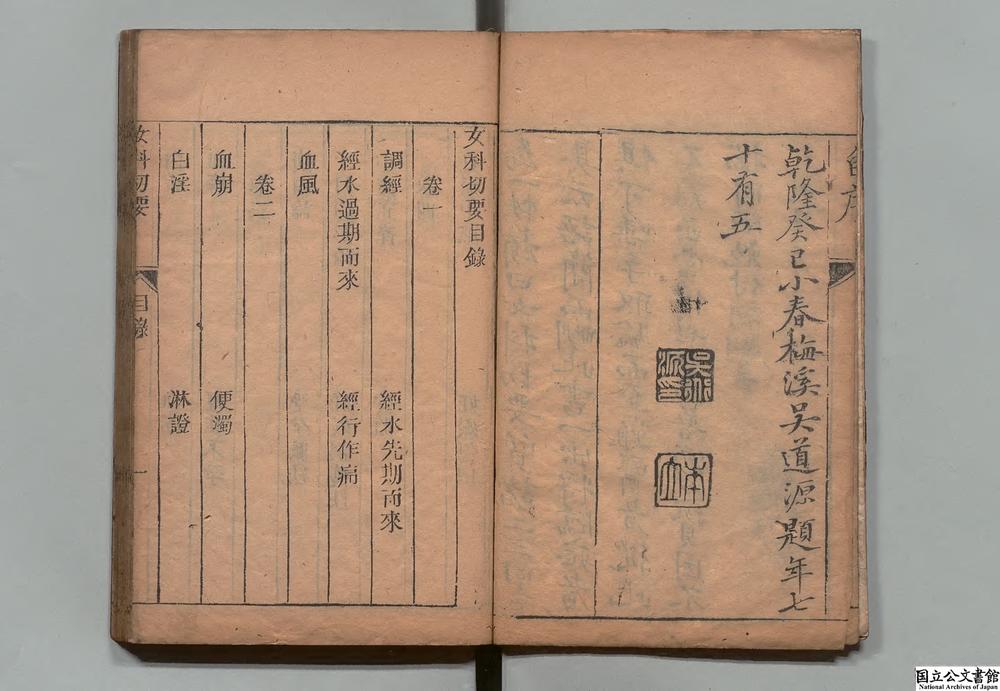 自序
乾隆癸巳小春梅溪吳道源題年七
十有五
女科切要目錄
卷一
調經 經水先期而來
經水過期而來 經行作痛
血風
卷二
血崩 便濁
白淫 淋證
女科切要 目錄 一
国立公文書館
National Archives of Japan